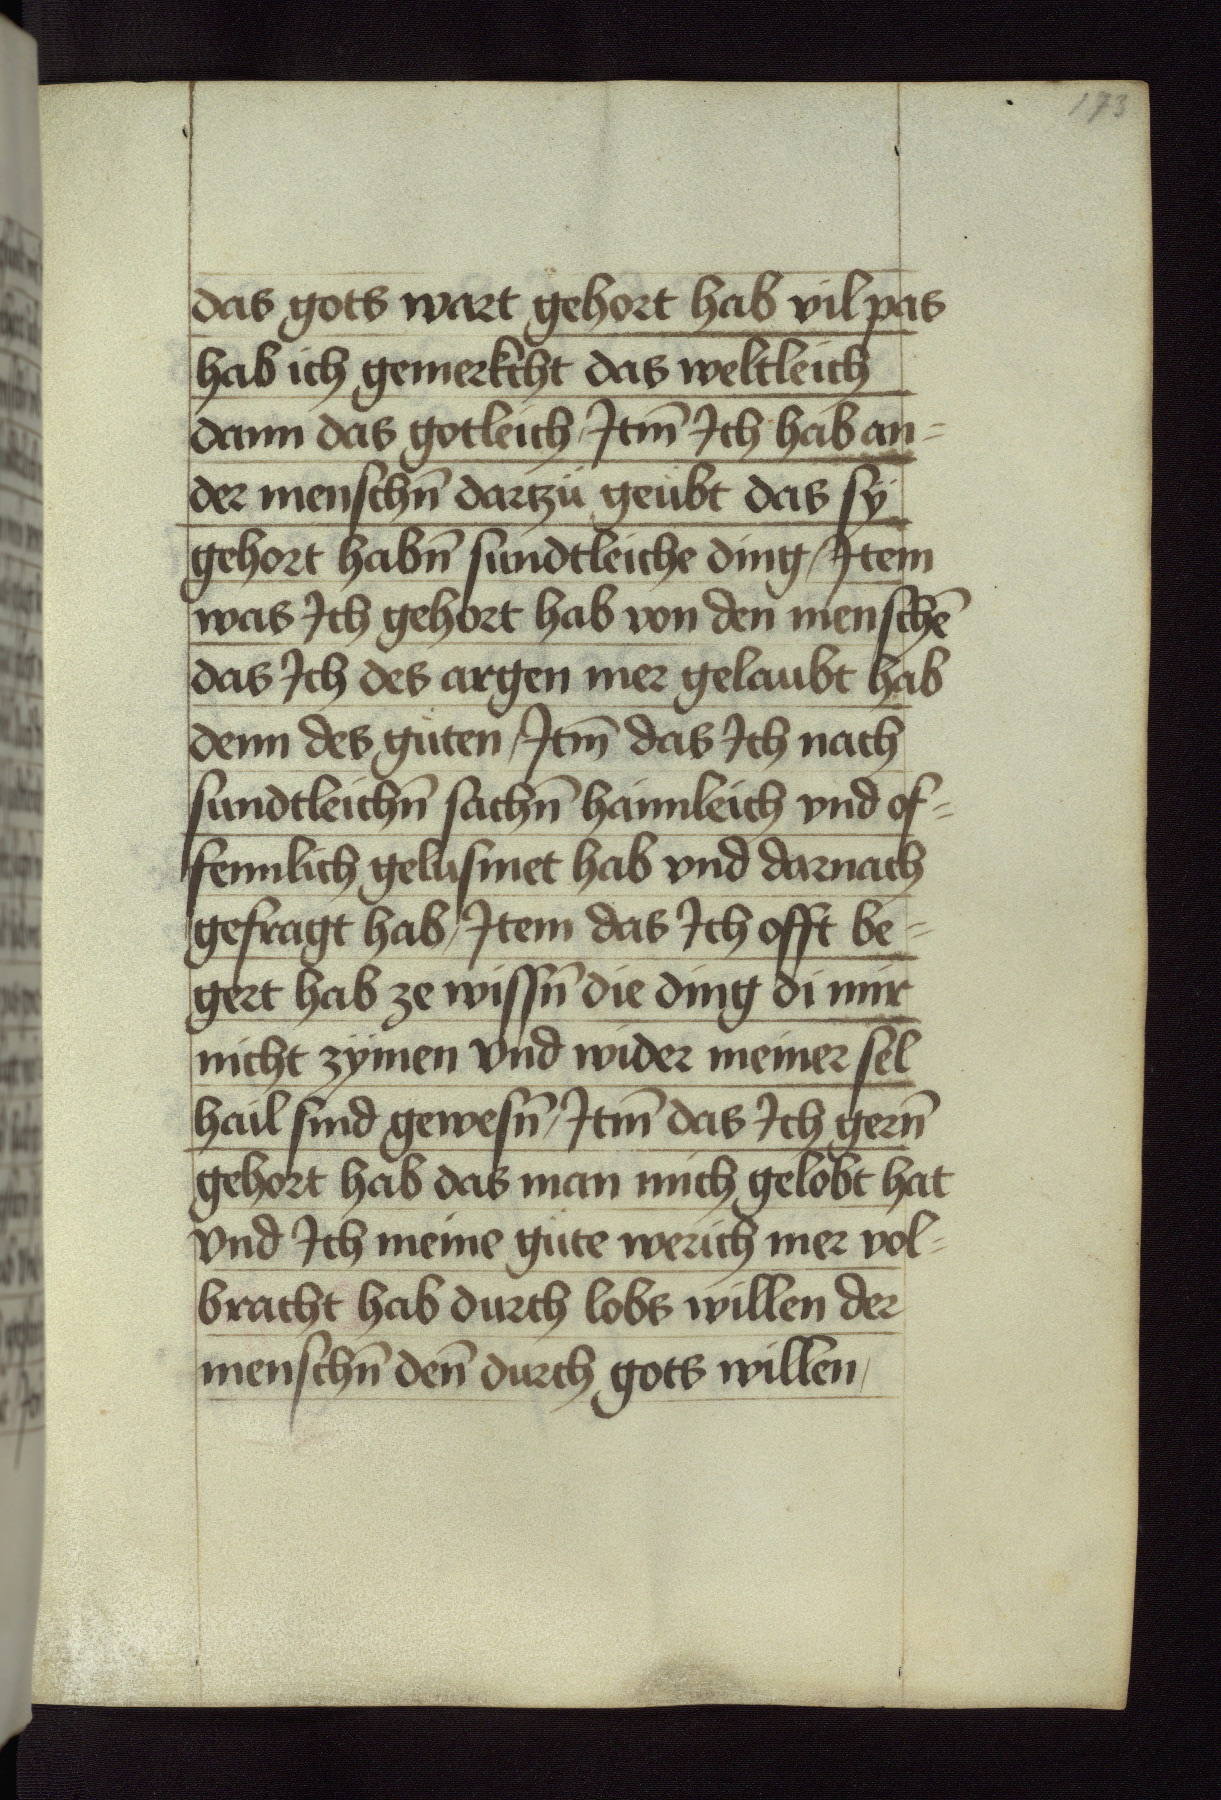 173
das gots wart gehort hab vil pas
hab ich gemerkcht das weltleich
dann das gotleich / Itm̄ Ich hab an=
der menschn̄ dartzů geübt das sÿ
gehort habn̄ sundtleiche ding / Item
was Ich gehort hab von den menschē
das Ich des argen mer gelaubt hab
denn des gůten / Itm̄ das Ich nach
sundtleichn̄ sachn̄ haimleich vnd of=
fennlich gelusmet hab vnd darnach
gefragt hab / Item das Ich offt be=
gert hab ze wissn̄ die ding di mir
nicht zymen vnd wider meiner sel
hail sind gewesn̄ / Itm̄ das Ich gern̄
gehort hab das man mich gelobt hat
vnd Ich meine gůte werich mer vol=
bracht hab durch lobs willen der
menschn̄ den̄ durch gots willen /